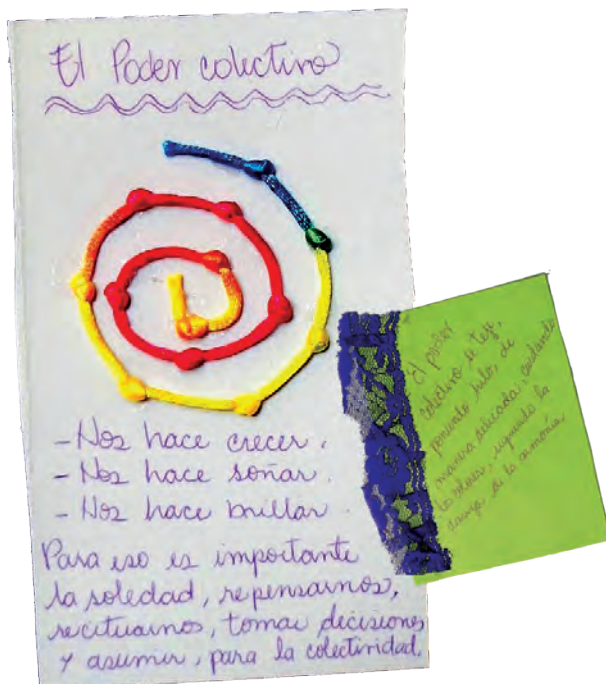 El Poder colectivo
- Nos hace crecer.
- Nos hace soñar.
- Nos hace brillar.
Para eso es importante
la soledad, repensarnos,
recituarnos, tomar decisiones
y asumir, para la colectividad.
El poder
colectivo se teje,
poniendo hilo, de
manera adecuada, cuidando
los colores, siguiendo la
danza de la armonía.